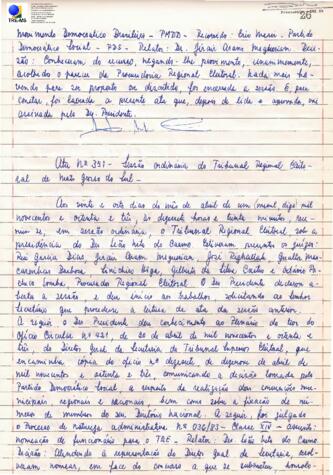 TRE-MS
26
Movimento Democrático Brasileiro - PMDB - Recorrido: Ciro Meri - Partido
Democrático Social - PDS - Relator: Dr. Jirair Aram Meguerian. Deci-
são: Conheceram do recurso, negando-lhe provimento, unanimemente,
acolhido o parecer da Procuradoria Regional Eleitoral. Nada mais ha-
vendo para ser proposto ou discutido, foi encerrada a sessão e, para
constar, foi lavrada a presente ata que, depois de lida e aprovada, vai
assinada pelo Sr. Presidente.
Ata Nº 351 - Sessão ordinária do Tribunal Regional Eleito-
ral de Mato Grosso do Sul -
Aos vinte e oito dias do mês de abril de um (mont, digo) mil
novecentos e oitenta e três, às dezessete horas e trinta minutos, reu-
niu-se, em sessão ordinária, o Tribunal Regional Eleitoral sob a
presidência do Des. Leão Neto do Carmo. Estiveram presentes os juízes:
Rui Garcia Dias, Jirair Aram Meguerian, José Rizkallah, Jualter Mas-
carenhas Barbosa, e
Procurador Regional Eleitoral. O Sr. Presidente declarou a-
berta a sessão e deu início ao trabalhos solicitando ao senhor
Secretário que procedesse a leitura da ata da sessão anterior.
A seguir o Sr. Presidente deu conhecimento ao Plenário do teor do
Ofício Circular nº 421, de 20 de abril de mil novecentos e oitenta e
três do Diretor Geral da Secretaria do Tribunal Superior Eleitoral, que
encaminha cópia do ofício nº de dezenove de abril de
mil novecentos e oitenta e três, comunicando a decisão tomada pelo
Partido Democrático Social, a respeito da realização das convenções mu-
nicipais regionais e nacionais, bem como sobre a fixação do nú-
mero de membros do seu Diretório nacional. A seguir, foi julgado
o Processo de natureza administrativa Nº 036/83 - Classe XIV - Assunto:
nomeação de funcionário para o TRE - Relator: Des. Leão Neto do Carmo
Decisão: Atendendo à representação do Diretor Geral da Secretaria, resol-
veram nomear, em face do concurso a que se submeteu,